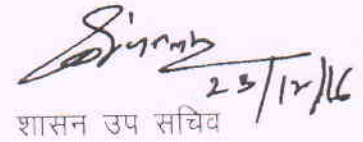 23/12/16
शासन उप सचिव